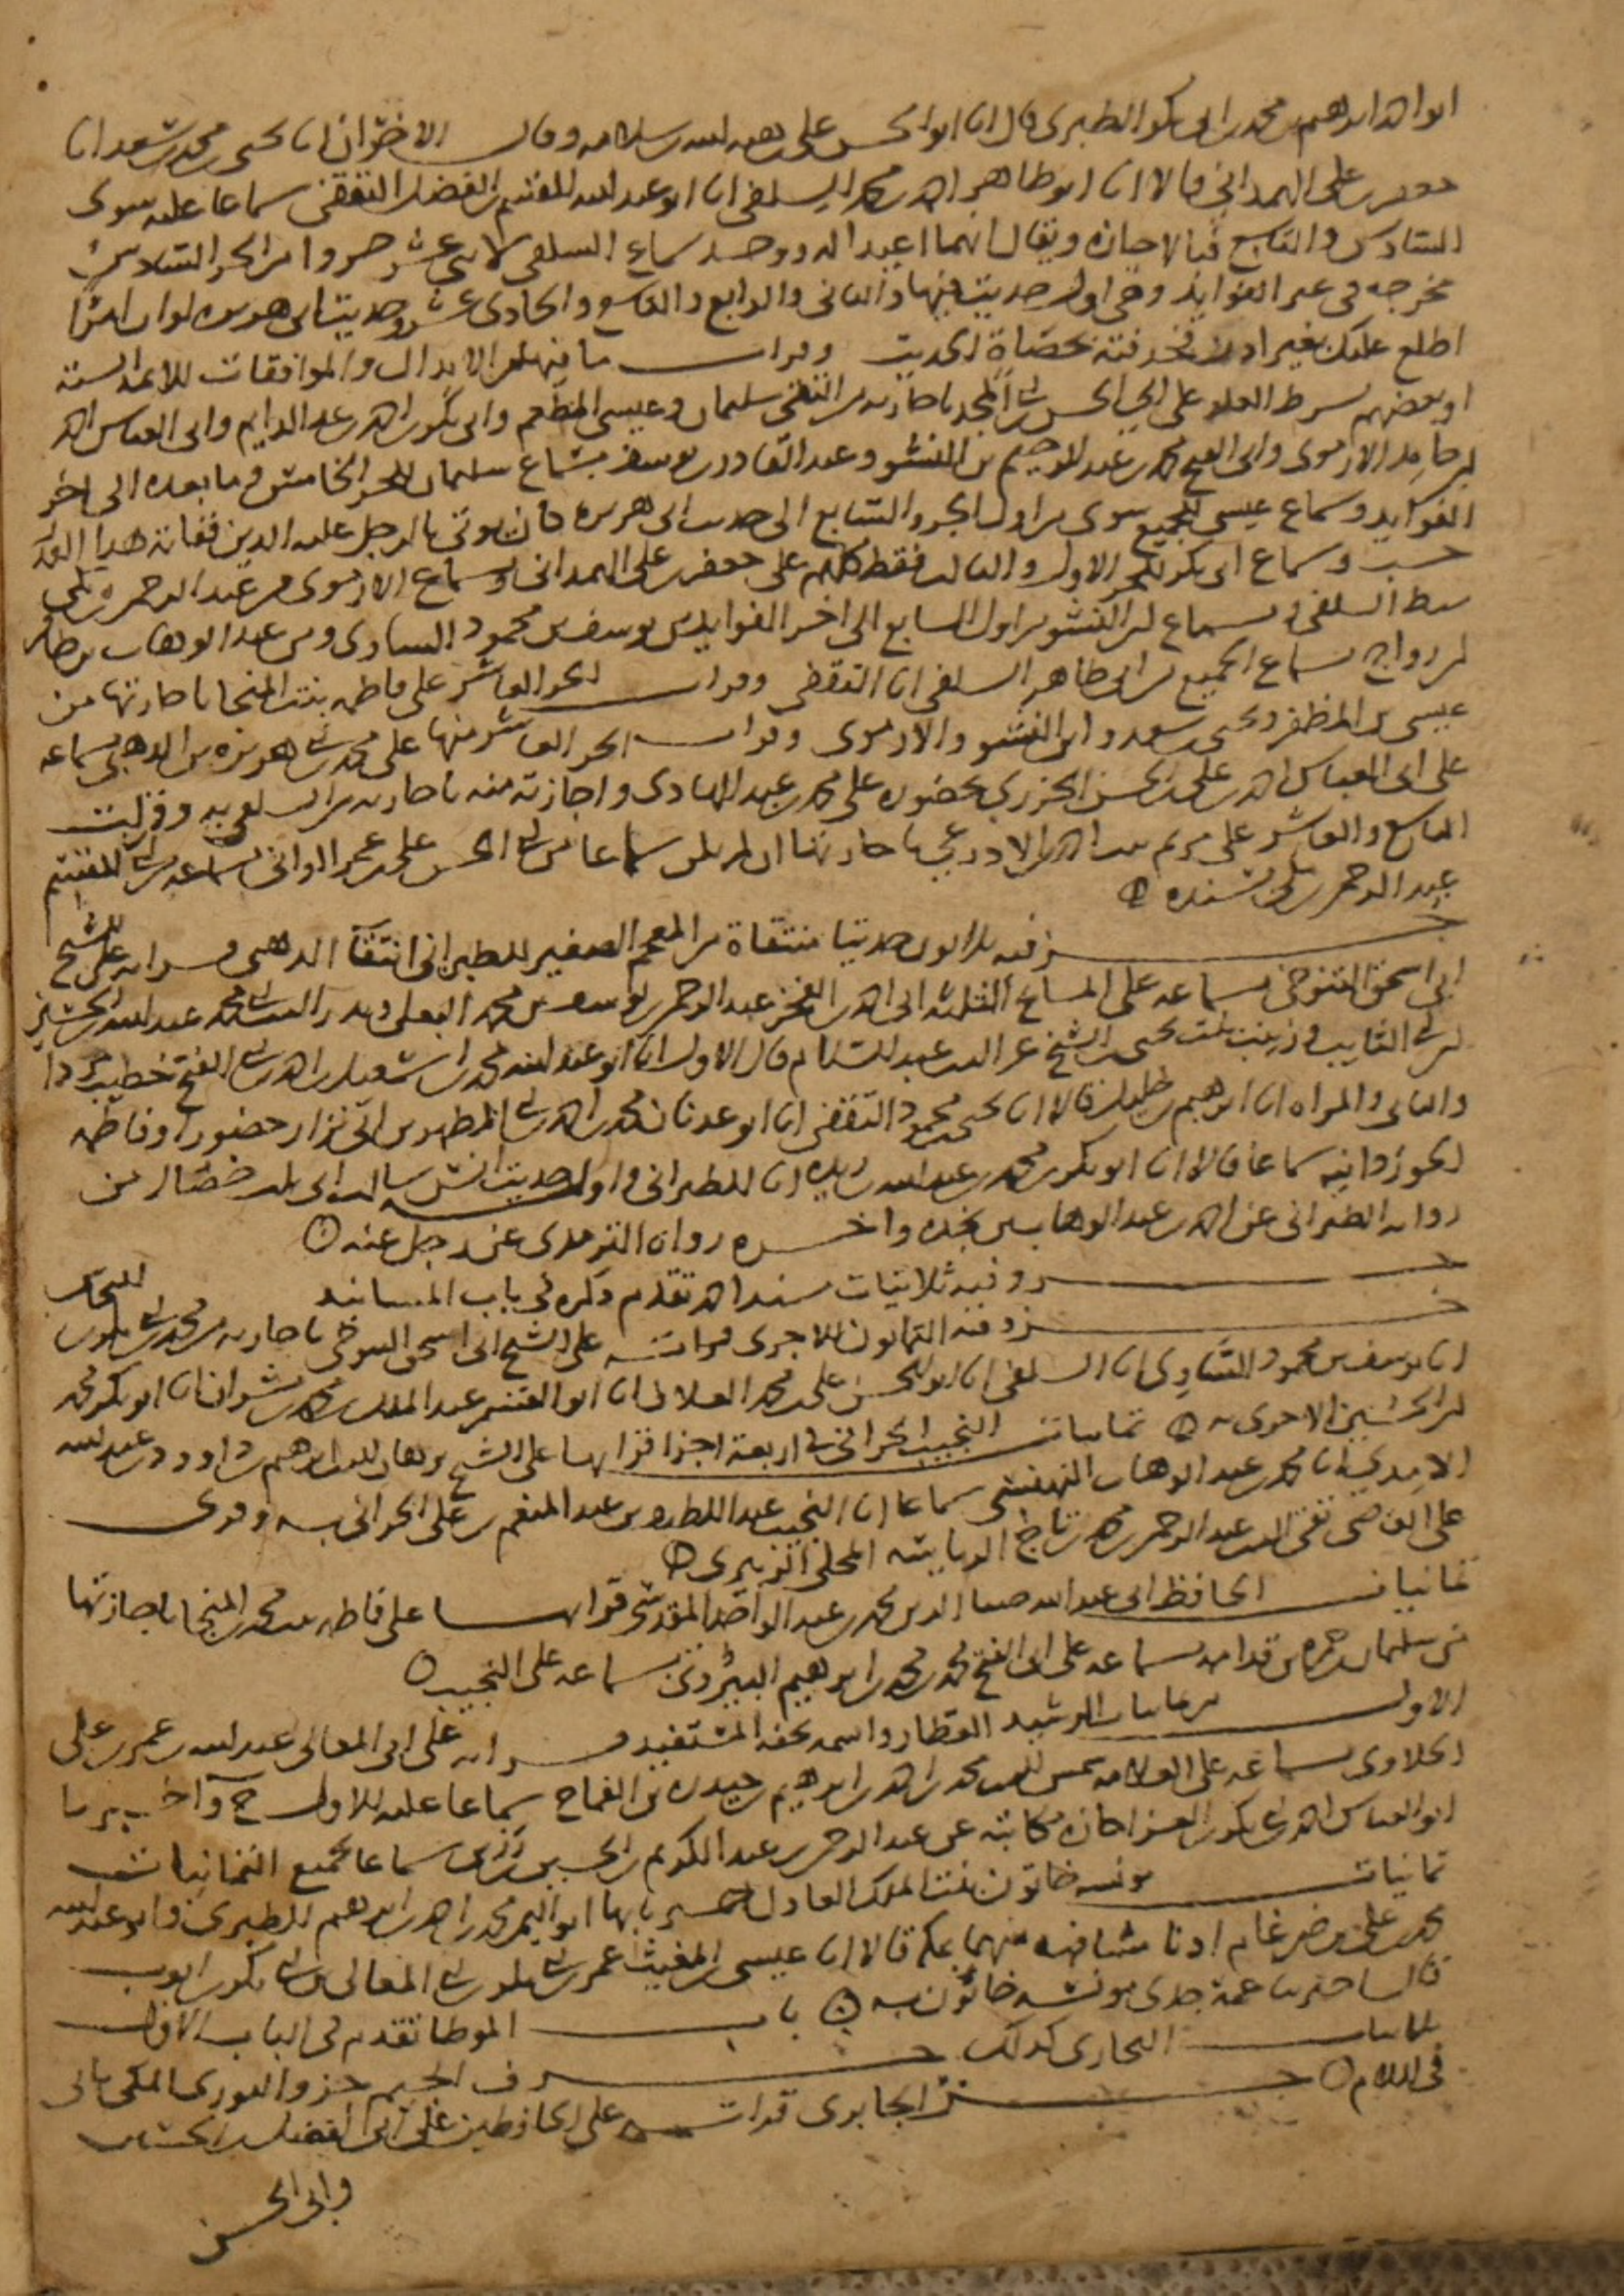 ابو احمد ابراهيم بن محمد بن ابي بكر الطبري قال انا ابو الحسن علي بن هبة الله بن سلامه وقال الاخران انا يحيى بن محمد بن سعد انا
جعفر بن علي الهمداني قالا انا ابو طاهر احمد بن محمد السلفي انا ابو عبد الله القسم بن الفضل الثقفي سماعا عليه سوى
السادس والتاسع فبالاجازه ويقال انهما اعيدا له ووجد سماع السلفي لاثني عشر جزوا من الجز السادس
مخرجه في عير الفوايد وفي اول حديث فيها والثاني والرابع والتاسع والحادي عشر وحديث ابي هريره لو ان امرًا
اطلع عليك بغير اذن فخذفته بحصاة الحديث وقرات ما فيها من الابدال والموافقات للايمة الستة
او بعضهم بشرط العلو على ابي الحسن بن ابي المجد باجازته من التقي سليمان وعيسى المطعم وابي بكر بن احمد بن عبد الدايم وابي العباس احمد
بن حامد الارموي وابي الفتح محمد بن عبد الرحيم بن النشو وعبد القادر بن يوسف بسماع سليمان للجز الخامس وما بعده الى اخر
الفوايد وسماع عيسى للجميع سوى من اول الجزو السابع الى حديث ابي هريره كان يوتى بالرجل عليه الدين ففاته هذا القدر
حسب وسماع ابي بكر للجز الاول والثالث فقط كلهم على جعفر بن علي الهمداني وبسماع الارموي من عبد الرحمن بن مكي
سبط السلفي وبسماع ابن النشو من اول السابع الى اخر الفوايد من يوسف بن محمود الساوي ومن عبد الوهاب بن ظافر
بن رواج بسماع الجميع من ابي طاهر السلفي انا الثقفي وقرات الجز العاشر على فاطمه بنت المنجا باجازتها من
عيسى بن المظفر ويحيى بن سعد وابن النشو والارموي وقرات الجز العاشر منها على محمد بن ابي هريره بن الذهبي بسماعه
على ابي العباس احمد بن علي بن الحسن الجزري بحضوره على محمد بن عبد الهادي واجازته منه باجازته من السلفي به وقرات
التاسع والعاشر على مريم بنت احمد بن الاذرعي باجازتها ان لم يكن سماعا من ابي الحسن علي بن عمر الواني بسماعه من ابي القسم
عبد الرحمن بن مكي بسنده ه
جزء فيه ثلاثون حديثا منتقاة من المعجم الصغير للطبراني انتقا الذهبي قراته على الشيخ
ابي اسحق التنوخي بسماعه على المسايخ الثلثه ابي احمد بن الفخر عبد الرحمن بن يوسف بن محمد البعلي وبدر الدين محمد بن عبد الله بن الحسين
بن ابي التايب وزينب بنت يحيى بن الشيخ عز الدين عبد السلام قال الاول انا ابو عبد الله محمد بن اسمعيل بن احمد بن ابي الفتح خطيب مردا
والثاني والمراه انا ابراهيم بن خليل قالا انا يحيى بن محمود الثقفي انا ابو عدنان محمد بن احمد بن ابي المطهر بن ابي نزار حضورا وفاطمه
الجوزدانيه سماعا قالا انا ابو بكر محمد بن عبد الله بن ريذه انا الطبراني واول حديث انس سالت ابي ثلث خصال من
روايه الطبراني عن احمد بن عبد الوهاب بن نجده واخره رواه الترمذي عن رجل عنه ه
جزو فيه ثلاثيات مسند احمد تقدم ذكره في باب المسانيد
جزو فيه الثمانون للاجري قرات على الشيخ ابي اسحق التنوخي باجازته من محمد بن ابي بكر بن النحاس
انا يوسف بن محمود الساوي انا السلفي انا ابو الحسن علي بن محمد العلاف انا ابو القسم عبد الملك بن محمد بن بشران انا ابو بكر محمد
بن الحسين الاجري به ه ثمانيات النجيب الحراني في اربعة اجزا قراتها على الشيخ برهان الدين ابراهيم بن داود بن عبد الله
الامدي انا محمد بن عبد الوهاب البهنسي سماعا انا النجيب عبد اللطيف بن عبد المنعم بن علي الحراني به وقرى
على القاضي تقي الدين عبد الرحمن بن محمد بن تاج الرياسه المحلي الزبيري ه
ثمانيات الحافظ ابي عبد الله ضيا الدين محمد بن عبد الواحد المقدسي قراتها على فاطمه بنت محمد بن المنجا باجازتها
من سليمان بن حمزه بن قدامه بسماعه على ابي الفتح محمد بن محمد بن ابراهيم سماعه على النجيب ه
الاول من ثمانيات الرشيد العطار واسمه تحفه المستفيد قراته على ابي المعالي عبد الله بن عمر بن علي
الحلاوي بسماعه على العلامه شمس الدين محمد بن احمد بن ابراهيم بن حيدره بن القماح سماعا عليه للاول ح واخبرنا
ابو العباس احمد بن ابي بكر بن العز اجازه مكاتبة عن عبد الرحمن بن عبد الكريم بن الحسين بن رزين سماعا لجميع الثمانيات
ثمانيات مونسه خاتون بنت الملك العادل اخبرنا بها ابو اليمن محمد بن احمد بن ابراهيم الطبري وابو عبد الله
محمد بن علي بن ضرغام اذنا مشافهة منهما بمكه قالا انا عيسى بن المغيث عمر بن ابي بكر بن ايوب
قال اخبرتنا عمة جدي مونسه خاتون به ه باب الموطا تقدم في الباب الاول
ثلاثيات البخاري كذلك حرف الجيم جزو الثوري المكي ياتي
في اللام ه جزء الجابري قرات على الحافظين على ابي الفضل بن الحسين
وابي الحسن